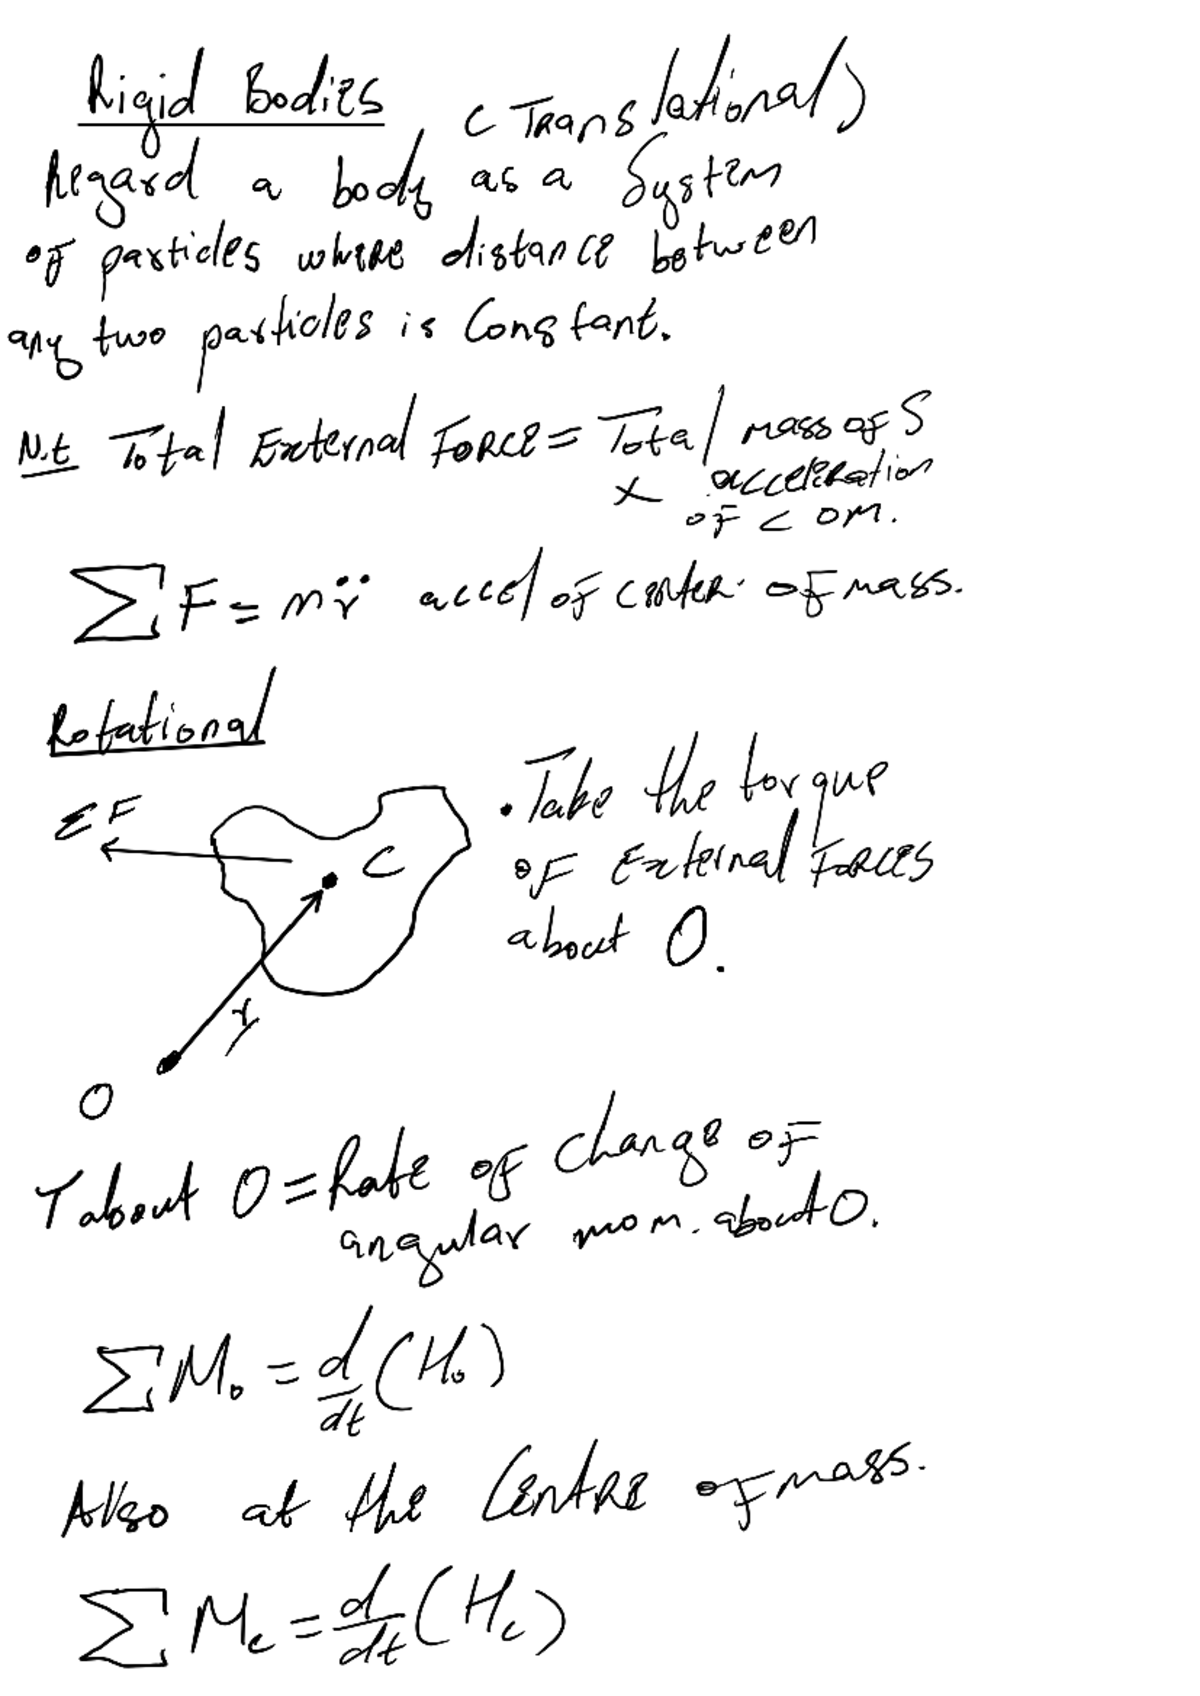 Rigid Bodies (Translational)
Regard a body as a System
of particles where distance between
any two particles is Constant.
N.t Total External Force = Total mass of S
× acceleration
of C OM.
∑ F = m r̈ accel of center of mass.
Rotational
ΣF
C
• Take the torque
of External Forces
about O.
r
O
T about O = Rate of change of
angular mom. about O.
∑ M₀ = d/dt (H₀)
Also at the Centre of mass.
∑ M_c = d/dt (H_c)